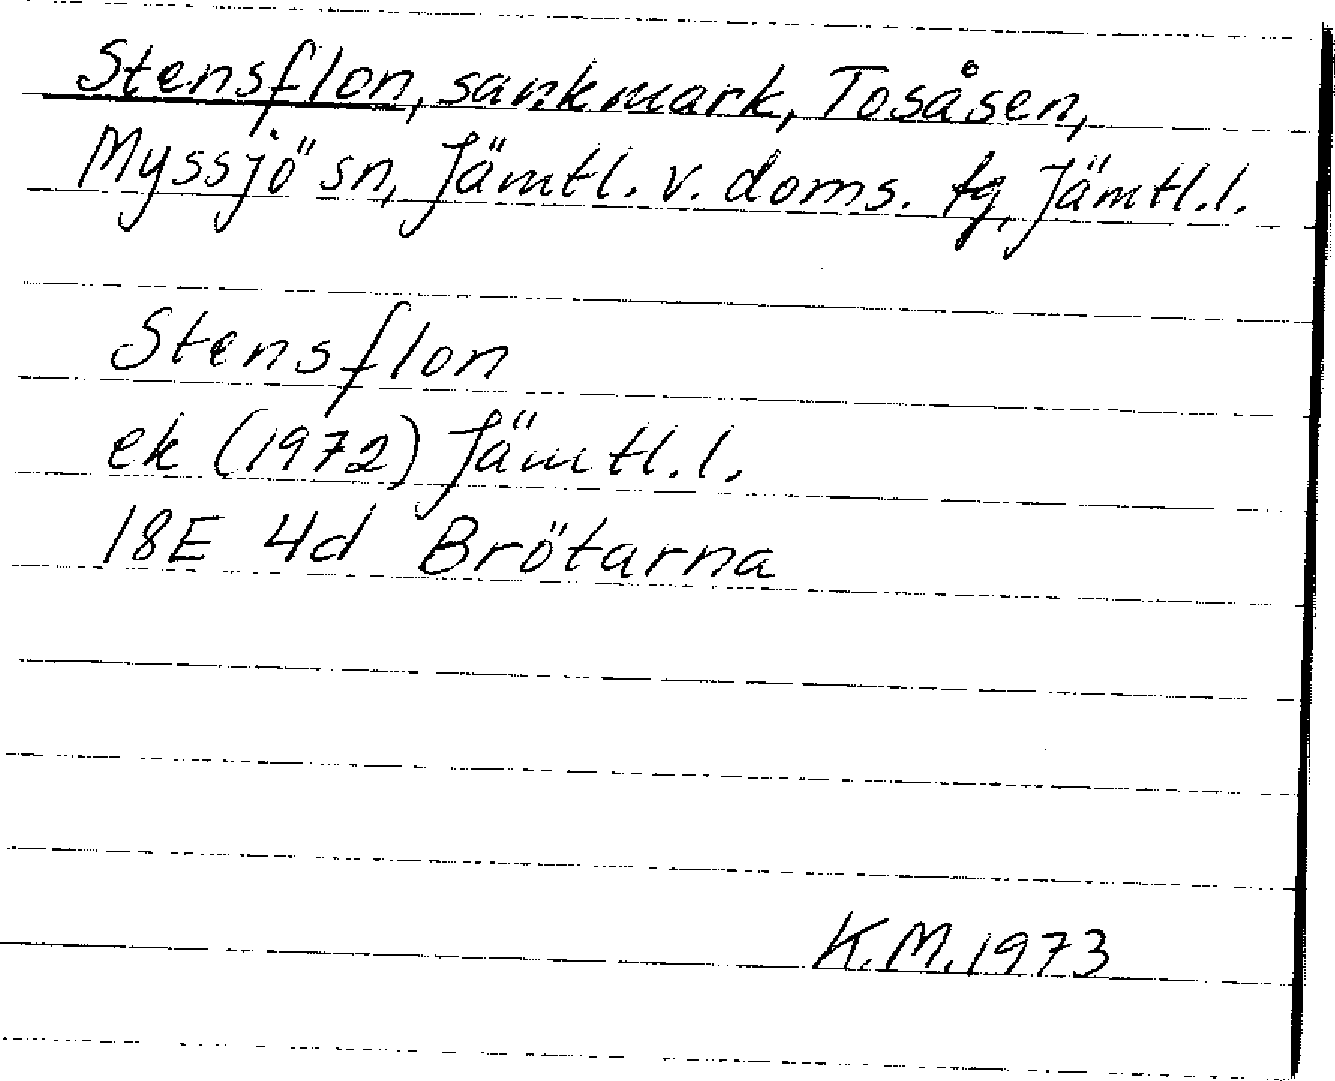 Stensflon, sankmark, Tosåsen,
Myssjö sn, Jämtl. v. doms. tg, Jämtl.l.
Stensflon
ek (1972) Jämtl.l.
18E 4d Brötarna
K.M. 1973